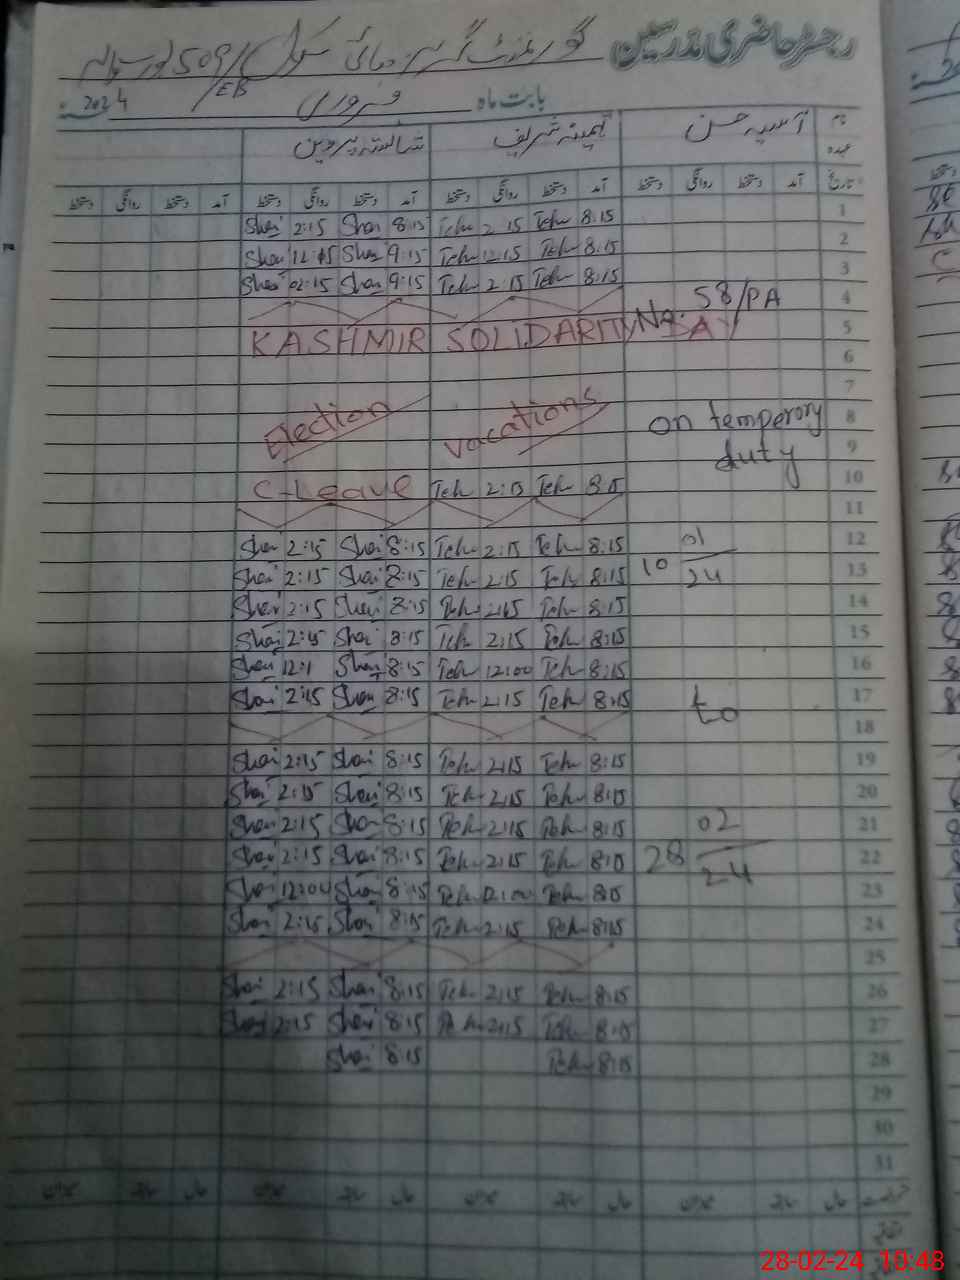 رجسٹر حاضری مدرسین گورنمنٹ گرلز ہائی سکول 509/EB
بابت ماہ فروری 2024
نام آسیہ حسن تہمینہ شریف شائستہ پروین
عہدہ
تاریخ آمد دستخط روانگی دستخط آمد دستخط روانگی دستخط آمد دستخط روانگی دستخط آمد دستخط روانگی دستخط
1 8:15 Teh 2:15 Teh 8:15 Shai 2:15 Shai
2 8:15 Teh 12:15 Teh 9:15 Shai 12:15 Shai
3 8:15 Teh 2:15 Teh 9:15 Shai 02:15 Shai
4 No. 58/PA
5 KASHMIR SOLIDARITY DAY
6
7
8 on temperory Election vacations
9 duty
10 8:15 Teh 2:15 Teh C-Leave
11
12 01 8:15 Teh 2:15 Teh 8:15 Shai 2:15 Shai
13 10 24 8:15 Teh 2:15 Teh 8:15 Shai 2:15 Shai
14 8:15 Teh 2:15 Teh 8:15 Shai 2:15 Shai
15 8:15 Teh 2:15 Teh 8:15 Shai 2:15 Shai
16 8:15 Teh 12:00 Teh 8:15 Shai Shai
17 to 8:15 Teh 2:15 Teh 8:15 Shai 2:15 Shai
18
19 8:15 Teh 2:15 Teh 8:15 Shai 2:15 Shai
20 8:15 Teh 2:15 Teh 8:15 Shai 2:15 Shai
21 02 8:15 Teh 2:15 Teh 8:15 Shai 2:15 Shai
22 28 24 8:15 Teh 2:15 Teh 8:15 Shai 2:15 Shai
23 8:15 Teh 12:00 Teh 8:15 Shai 12:00 Shai
24 8:15 Teh 2:15 Teh 8:15 Shai 2:15 Shai
25
26 8:15 Teh 2:15 Teh 8:15 Shai 2:15 Shai
27 8:15 Teh 2:15 Teh 8:15 Shai 2:15 Shai
28 8:15 Teh 8:15 Shai
29
30
31
28-02-24 10:48